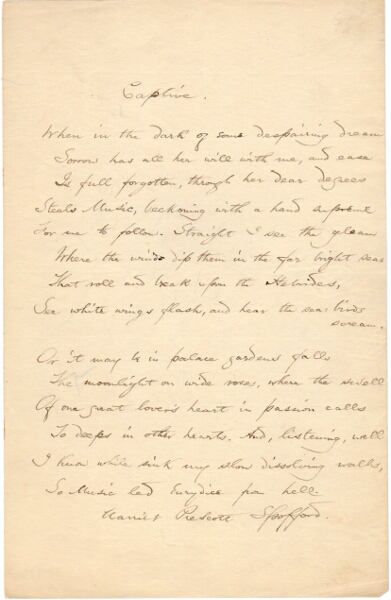 Captive.
When in the dark of some despairing dream
Sorrow has all her will with me, and ease
Is full forgotten, through her dear degrees
Steals Music, beckoning with a hand supreme
For me to follow. Straight I see the gleam
Where the winds dip them in the far bright seas
That roll and break upon the Hebrides,
See white wings flash, and hear the sea-birds
scream.
Or it may be in palace gardens falls
The moonlight on wide roses, where the swell
Of one great lover's heart in passion calls
To deeps in other hearts. And, listening, well
I know while sink my slow dissolving walls,
So Music led Eurydice from hell.
Harriet Prescott Spofford.